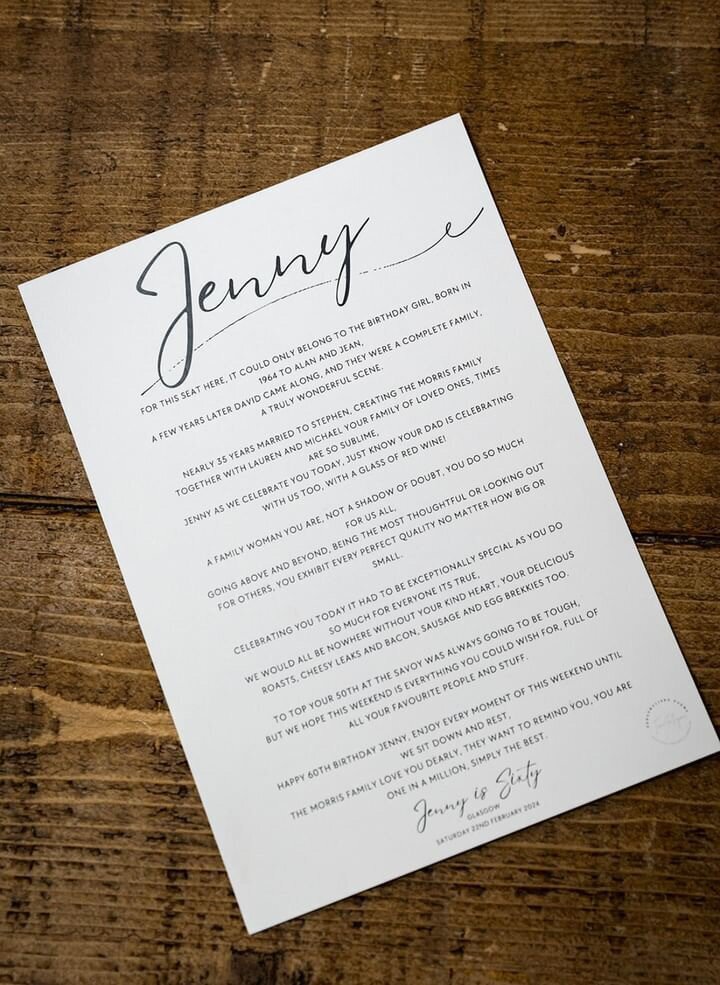 Jenny
FOR THIS SEAT HERE, IT COULD ONLY BELONG TO THE BIRTHDAY GIRL, BORN IN
1964 TO ALAN AND JEAN,
A FEW YEARS LATER DAVID CAME ALONG, AND THEY WERE A COMPLETE FAMILY,
A TRULY WONDERFUL SCENE.
NEARLY 35 YEARS MARRIED TO STEPHEN, CREATING THE MORRIS FAMILY
TOGETHER WITH LAUREN AND MICHAEL YOUR FAMILY OF LOVED ONES, TIMES
ARE SO SUBLIME,
JENNY AS WE CELEBRATE YOU TODAY, JUST KNOW YOUR DAD IS CELEBRATING
WITH US TOO, WITH A GLASS OF RED WINE!
A FAMILY WOMAN YOU ARE, NOT A SHADOW OF DOUBT, YOU DO SO MUCH
FOR US ALL,
GOING ABOVE AND BEYOND, BEING THE MOST THOUGHTFUL OR LOOKING OUT
FOR OTHERS, YOU EXHIBIT EVERY PERFECT QUALITY NO MATTER HOW BIG OR
SMALL.
CELEBRATING YOU TODAY IT HAD TO BE EXCEPTIONALLY SPECIAL AS YOU DO
SO MUCH FOR EVERYONE ITS TRUE,
WE WOULD ALL BE NOWHERE WITHOUT YOUR KIND HEART, YOUR DELICIOUS
ROASTS, CHEESY LEAKS AND BACON, SAUSAGE AND EGG BREKKIES TOO.
TO TOP YOUR 50TH AT THE SAVOY WAS ALWAYS GOING TO BE TOUGH,
BUT WE HOPE THIS WEEKEND IS EVERYTHING YOU COULD WISH FOR, FULL OF
ALL YOUR FAVOURITE PEOPLE AND STUFF.
HAPPY 60TH BIRTHDAY JENNY, ENJOY EVERY MOMENT OF THIS WEEKEND UNTIL
WE SIT DOWN AND REST,
THE MORRIS FAMILY LOVE YOU DEARLY, THEY WANT TO REMIND YOU, YOU ARE
ONE IN A MILLION, SIMPLY THE BEST.
Jenny is Sixty
GLASGOW
SATURDAY 22ND FEBRUARY 2024